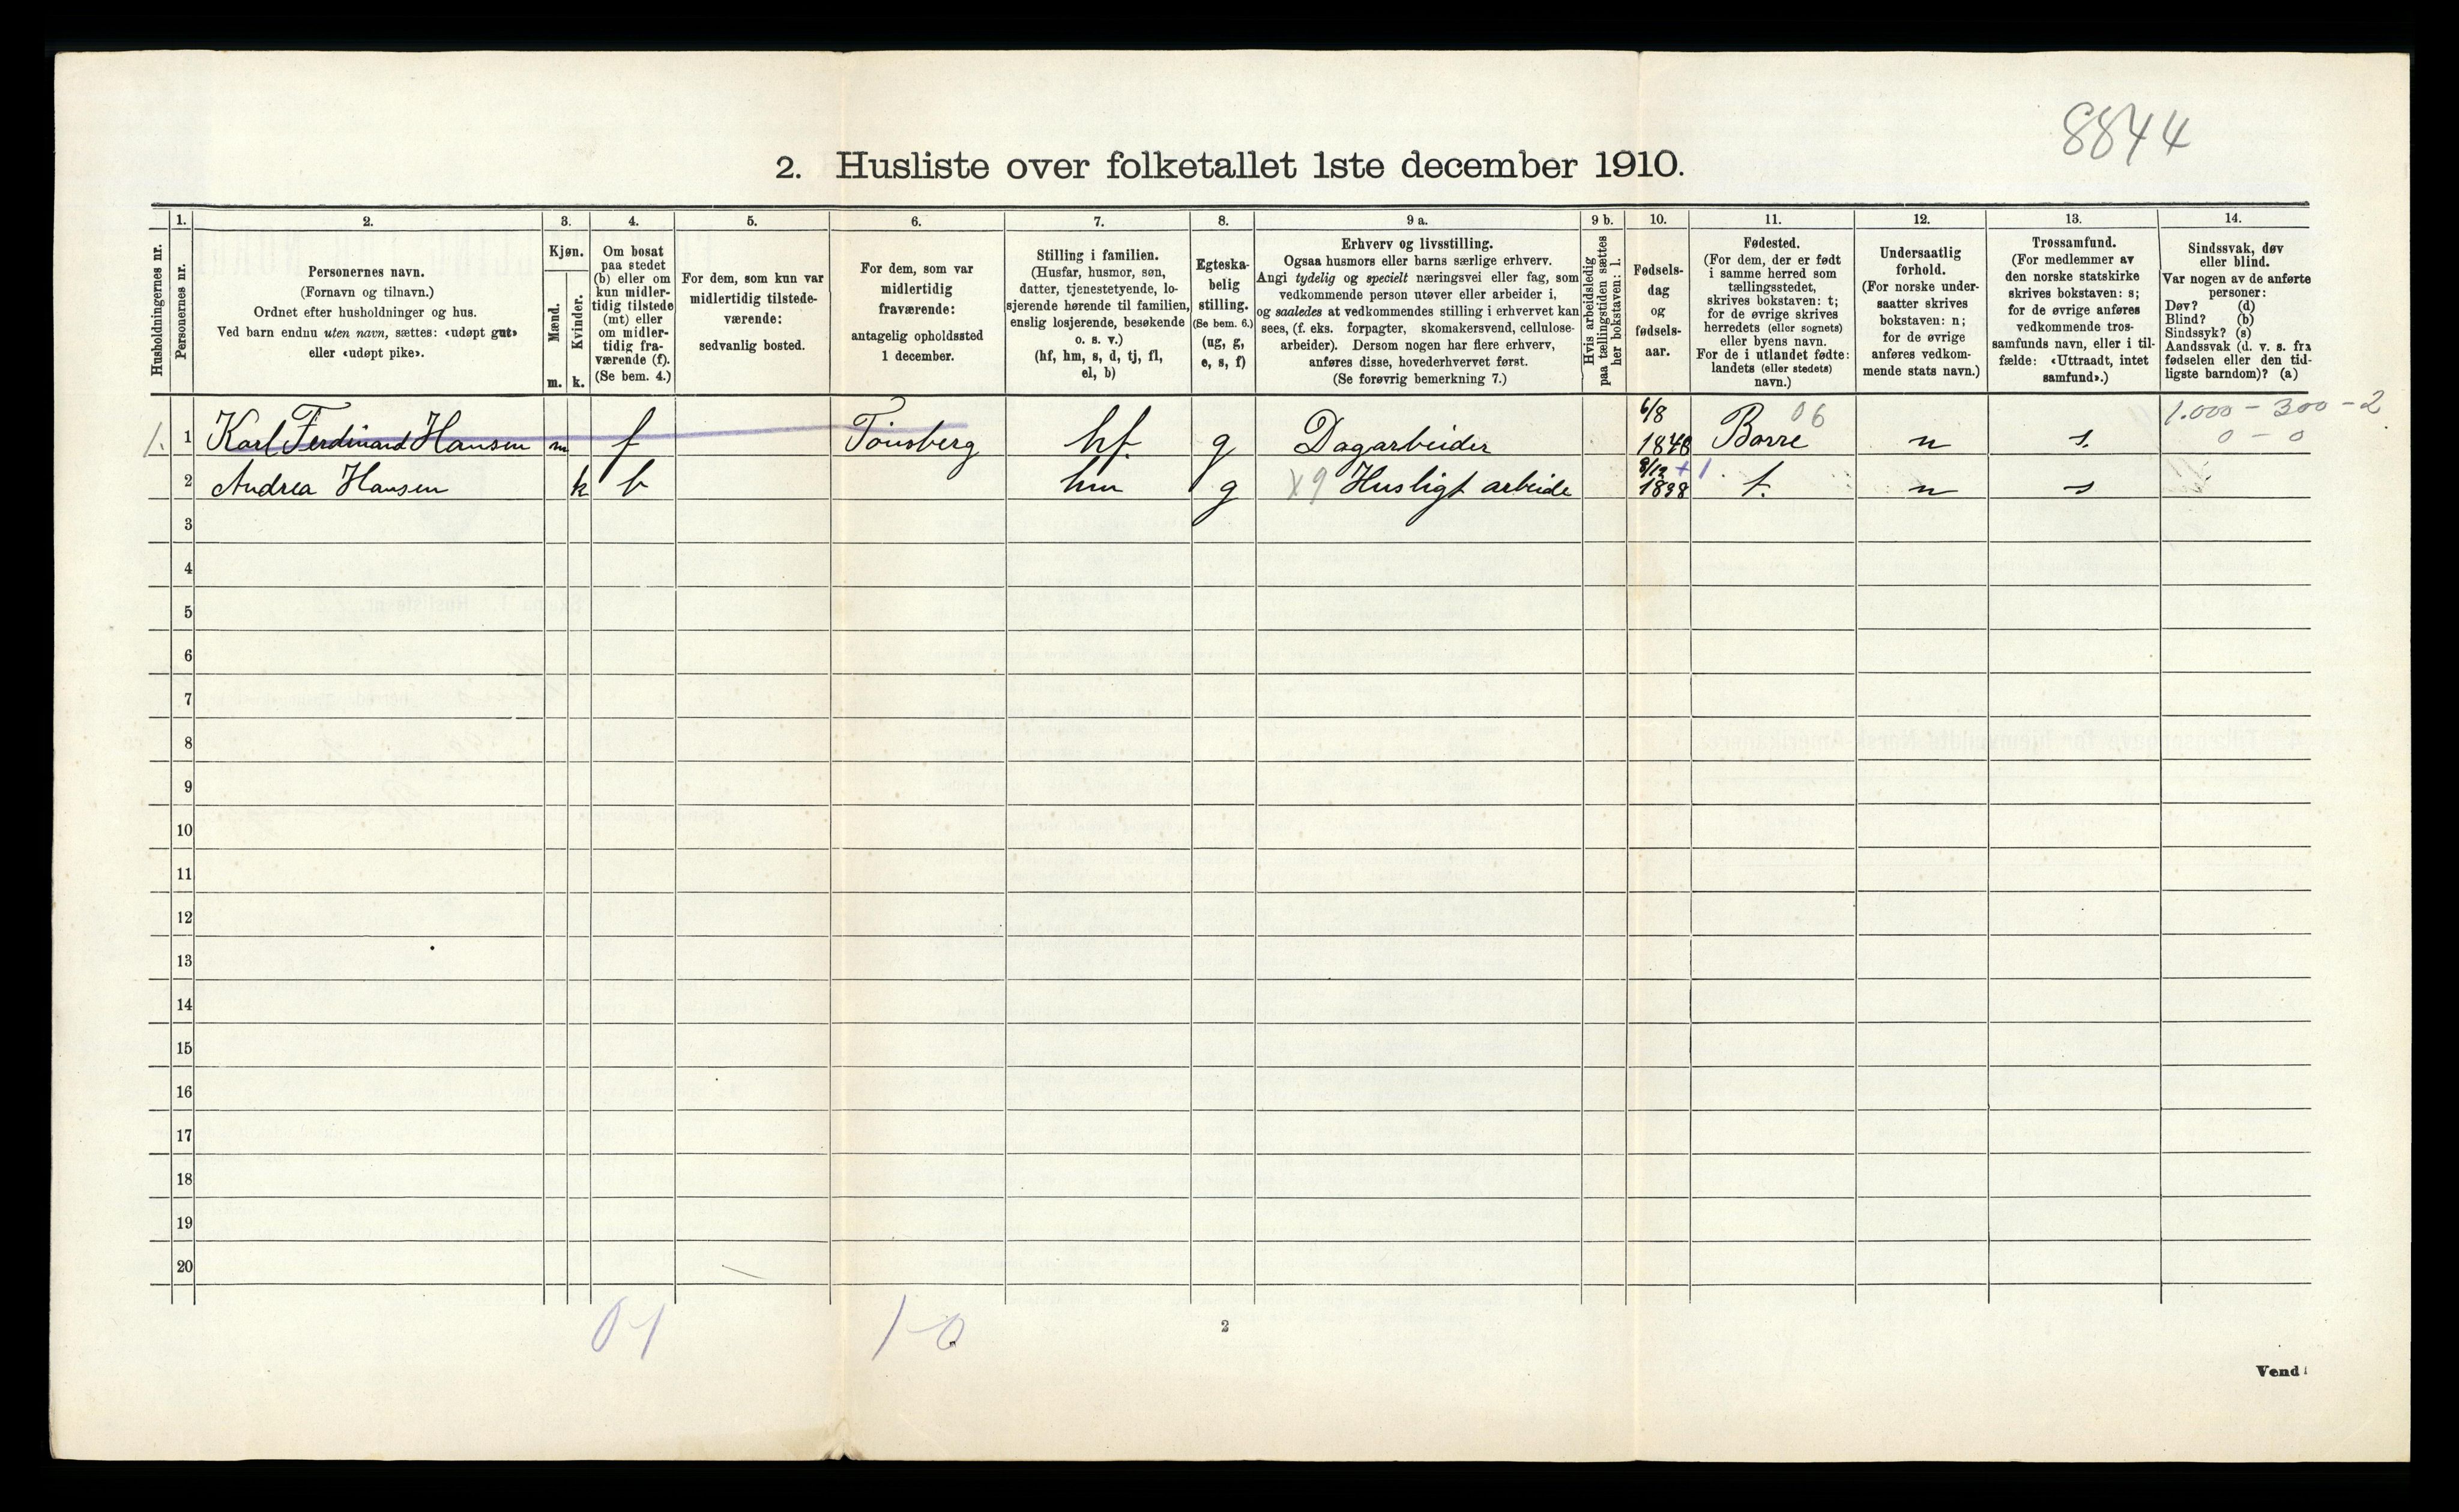 8844
2. Husliste over folketallet 1ste december 1910.
Husholdningernes nr.
1.
Personernes nr.
2.
Personernes navn.
(Fornavn og tilnavn.)
Ordnet efter husholdninger og hus.
Ved barn endnu uten navn, sættes: «udøpt gut»
eller «udøpt pike».
3.
Kjøn.
Mænd.
Kvinder.
m. k.
4.
Om bosat
paa stedet
(b) eller om
kun midler-
tidig tilstede
(mt) eller
om midler-
tidig fra-
værende (f).
(Se bem. 4.)
5.
For dem, som kun var
midlertidig tilstede-
værende:
sedvanlig bosted.
6.
For dem, som var
midlertidig
fraværende:
antagelig opholdssted
1 december.
7.
Stilling i familien.
(Husfar, husmor, søn,
datter, tjenestetyende, lo-
sjerende hørende til familien,
enslig losjerende, besøkende
o. s. v.)
(hf, hm, s, d, tj, fl,
el, b)
8.
Egteska-
belig
stilling.
(Se bem. 6.)
(ug, g,
e, s, f)
9 a.
Erhverv og livsstilling.
Ogsaa husmors eller barns særlige erhverv.
Angi tydelig og specielt næringsvei eller fag, som
vedkommende person utøver eller arbeider i,
og saaledes at vedkommendes stilling i erhvervet kan
sees, (f. eks. forpagter, skomakersvend, cellulose-
arbeider). Dersom nogen har flere erhverv,
anføres disse, hovederhvervet først.
(Se forøvrig bemerkning 7.)
9 b.
Hvis arbeidsledig
paa tællingstiden sættes
her bokstaven: l.
10.
Fødsels-
dag
og
fødsels-
aar.
11.
Fødested.
(For dem, der er født
i samme herred som
tællingsstedet,
skrives bokstaven: t;
for de øvrige skrives
herredets (eller sognets)
eller byens navn.
For de i utlandet fødte:
landets (eller stedets)
navn.)
12.
Undersaatlig
forhold.
(For norske under-
saatter skrives
bokstaven: n;
for de øvrige
anføres vedkom-
mende stats navn.)
13.
Trossamfund.
(For medlemmer av
den norske statskirke
skrives bokstaven: s;
for de øvrige anføres
vedkommende tros-
samfunds navn, eller i til-
fælde: «Uttraadt, intet
samfund».)
14.
Sindssvak, døv
eller blind.
Var nogen av de anførte
personer:
Døv? (d)
Blind? (b)
Sindssyk? (s)
Aandssvak (d. v. s. fra
fødselen eller den tid-
ligste barndom)? (a)
6/8 06 1.000 - 300 - 2
1. 1 Karl Ferdinand Hansen m f Tönsberg hf. g Dagarbeider Borre n s. 0 - 0
+ 1
2 Andrea Hansen k b hm g X9 Husligt arbeide t. n s
3
4
5
6
7
8
9
10
11
12
13
14
15
16
17
18
19
20
0-1 1-0
2
Vend